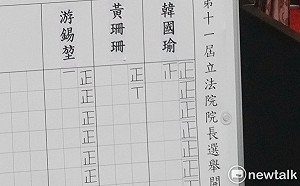 第十一屆立法院院長選舉開
韓國瑜
正正正正正正正正
黃珊珊
正
游錫堃
正正正正正正
newtalk